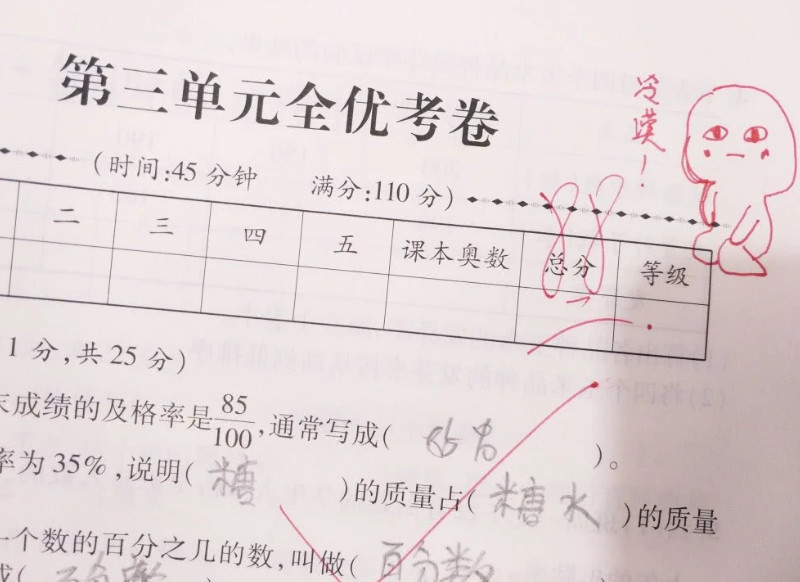 第三单元全优考卷
冷漠
(时间:45分钟 满分:110分)
二 三 四 五 课本奥数 总分 等级
88
1分,共25分)
末成绩的及格率是85/100,通常写成( 85% )。
率为35%,说明( 糖 )的质量占( 糖水 )的质量
一个数的百分之几的数,叫做( 百分数
成( 百分数 )